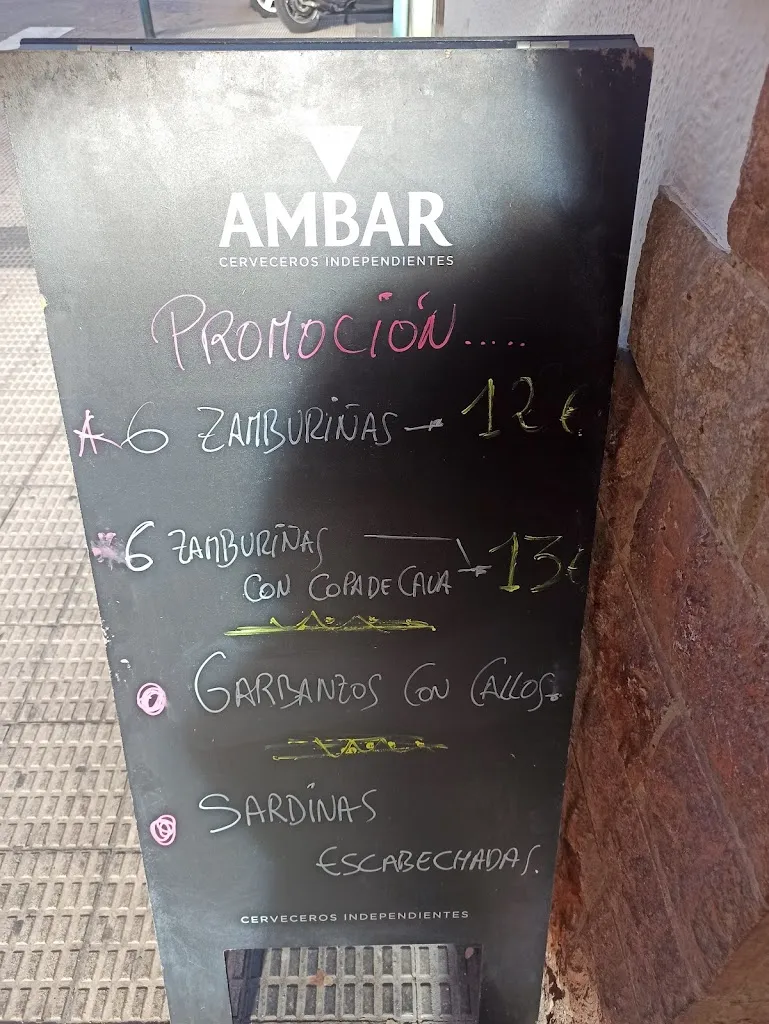 AMBAR
CERVECEROS INDEPENDIENTES
PROMOCIÓN.....
6 ZAMBURIÑAS → 12€
6 ZAMBURIÑAS → 13€
CON COPA DE CAVA
GARBANZOS CON CALLOS.
SARDINAS
ESCABECHADAS.
CERVECEROS INDEPENDIENTES